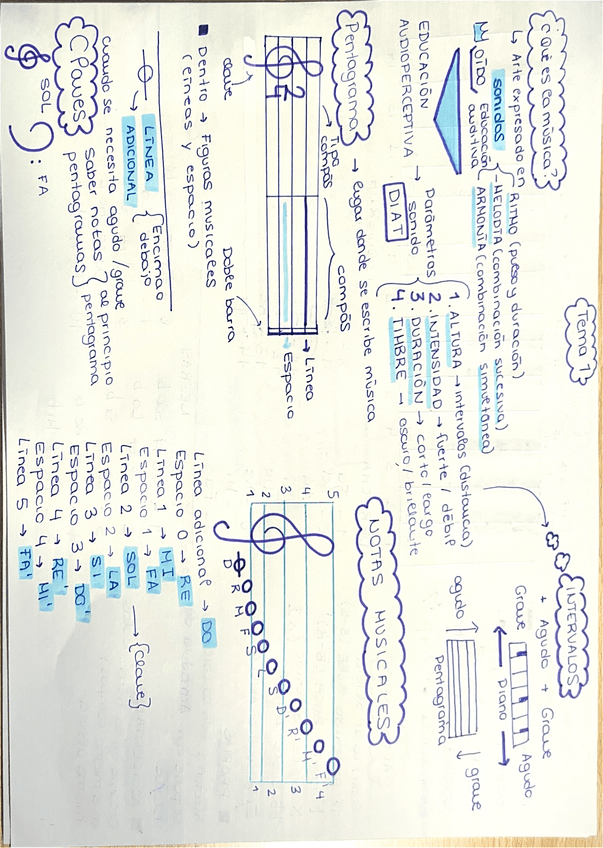 Tema 1
¿Qué es la música?
↳ Arte expresado en sonidos
RITMO (pulso y duración)
- MELODÍA (combinación sucesiva)
ARMONÍA (combinación simultánea)
MY OÍDO, Educación auditiva
EDUCACIÓN AUDIOPERCEPTIVA → Parámetros sonido
DIAT
1. ALTURA → intervalos (distancia)
2. INTENSIDAD → fuerte / débil
3. DURACIÓN → corto / largo
4. TIMBRE → oscuro / brillante
INTERVALOS
+ Agudo + Grave
Grave Agudo
← Piano →
agudo grave
Pentagrama
Pentagrama → lugar donde se escribe música
Tipo compás
compás
2
4
→ Línea
→ Espacio
clave
Doble barra
■ Dentro → Figuras musicales
(líneas y espacio)
LÍNEA ADICIONAL
Encima o debajo
cuando se necesita agudo / grave
Claves
Saber notas pentagramas
al principio del pentagrama
SOL
: FA
NOTAS MUSICALES
5
4
3
2
1
D R M F S L S D' R' M' F'
4
3
2
1
Línea adicional → DO
Espacio 0 → RE
Línea 1 → MI
Espacio 1 → FA
Línea 2 → SOL → {Clave}
Espacio 2 → LA
Línea 3 → SI
Espacio 3 → DO'
Línea 4 → RE'
Espacio 4 → MI'
Línea 5 → FA'